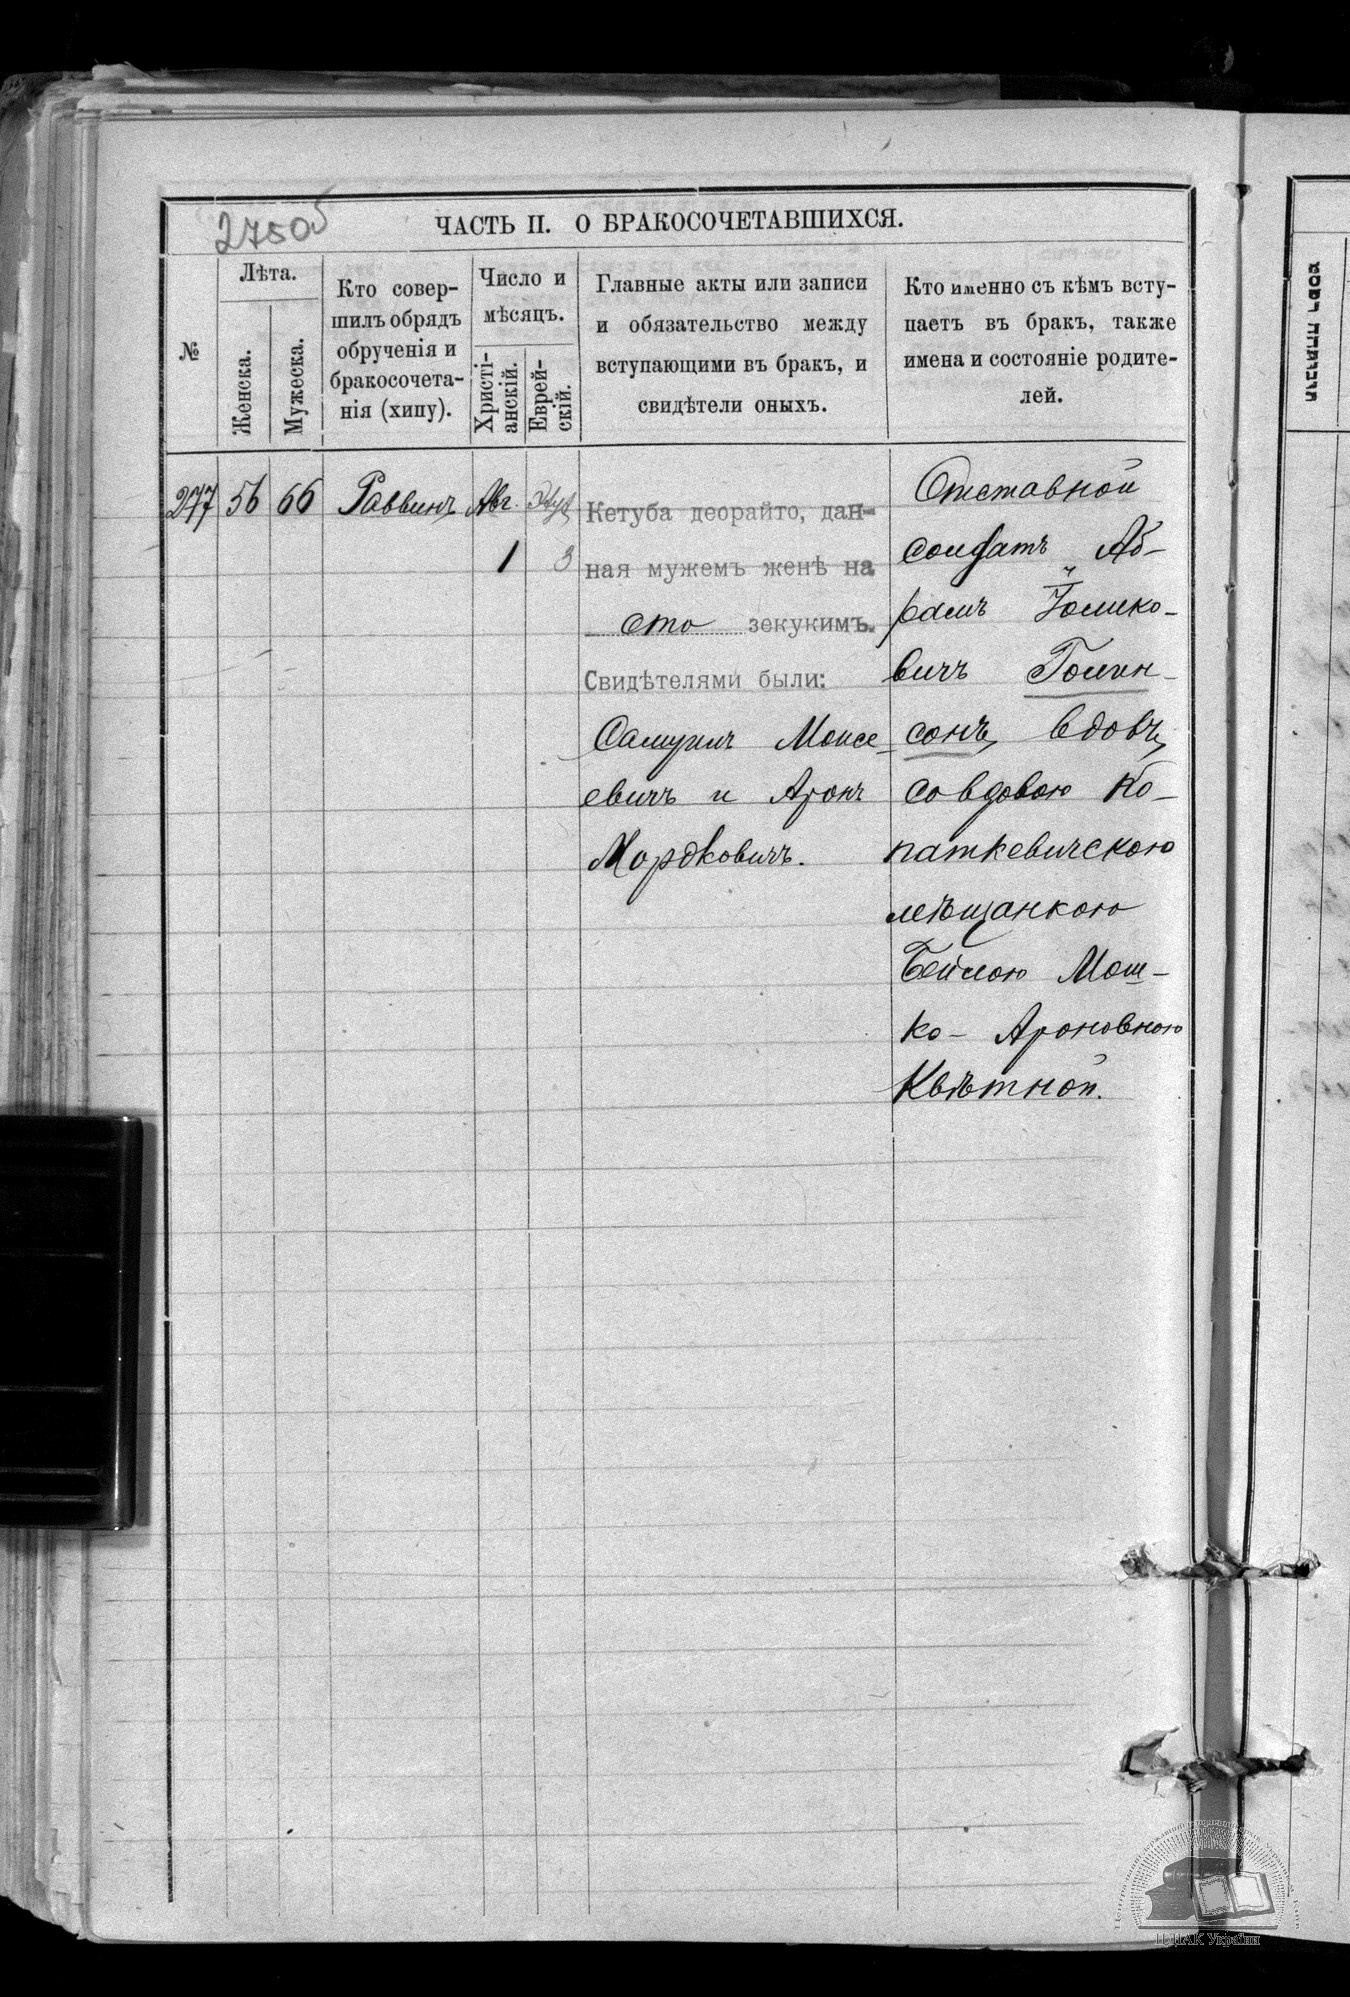 2750
ЧАСТЬ II. О БРАКОСОЧЕТАВШИХСЯ.
№
Лѣта.
Женска.
Мужеска.
Кто совер-
шилъ обрядъ
обрученія и
бракосочета-
нія (хипу).
Число и
мѣсяцъ.
Христі-
анскій.
Еврей-
скій.
Главные акты или записи
и обязательство между
вступающими въ бракъ, и
свидѣтели оныхъ.
Кто именно съ кѣмъ всту-
паетъ въ бракъ, также
имена и состояніе родите-
лей.
277
56
66
Раввинъ
Авг.
1
3
Кетуба деорайто, дан-
ная мужемъ женѣ на
сто зекукимъ.
Свидѣтелями были:
Самуилъ Моисе-
евичъ и Аронъ
Мордковичъ.
Отставной
солдатъ Аб-
рамъ
вичъ
сонъ, вдовъ,
со вдовою Ко-
паткевичскою
мѣщанкою
Бейлою Мош-
ко-Ароновною
Квѣтной.
ЦДІАК України